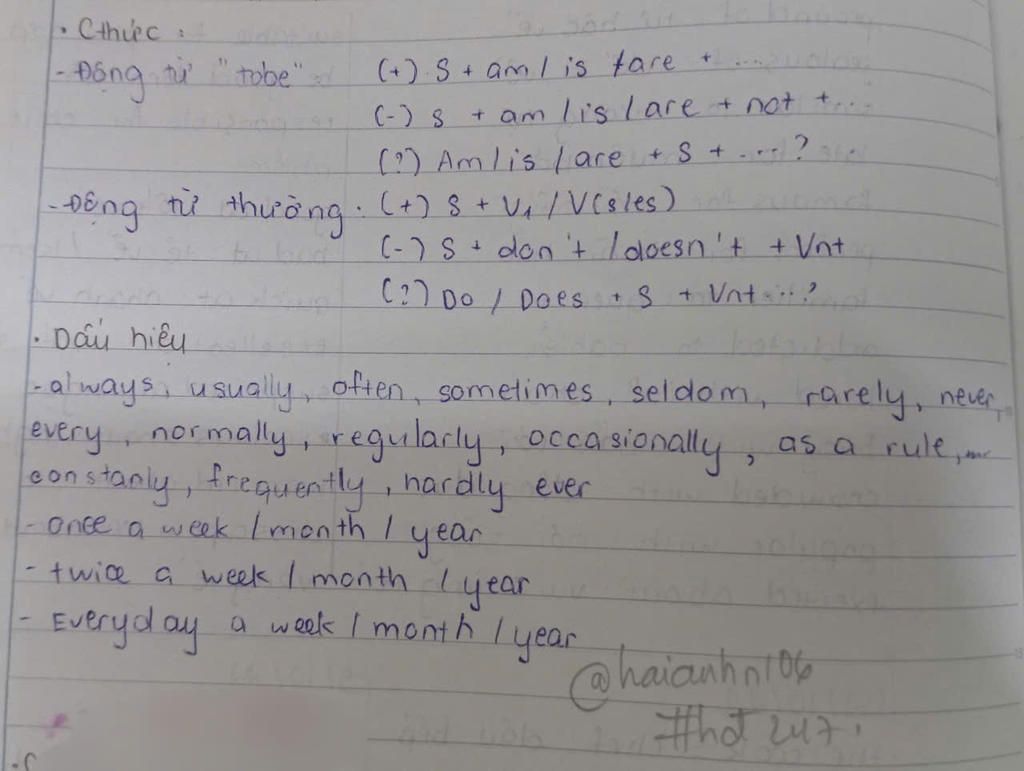 . Cthức :
- Động từ "tobe" (+) S + am / is /are + ....
(-) S + am / is / are + not + ....
(?) Am / is / are + S + ....?
- Động từ thường. (+) S + V1 / V(s/es)
(-) S + don't / doesn't + Vnt
(?) Do / Does + S + Vnt...?
. Dấu hiệu
- always, usually, often, sometimes, seldom, rarely, never,
every, normally, regularly, occasionally, as a rule,
constanly, frequently, hardly ever
- once a week / month / year
- twice a week / month / year
- Everyday a week / month / year
@haianhn106
#hot 247.